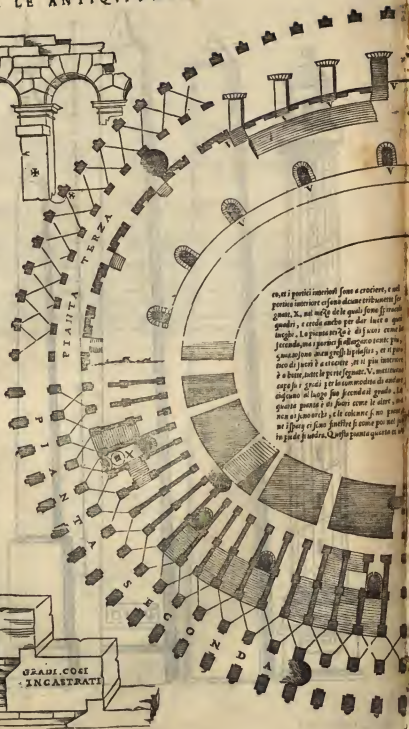 LE ANTIQVI
PIANTA TERZA
en, et i portici interiori sono a crociere, e nel
portico interiore ci sono alcune tribunette se
gnate, X, nel mezo de le quali sono spiracoli
quadri, e credo ancho per dar luce a quei
luoghi. La pianta terza è di fuori come la
seconda, ma i portici si allargano
sono men grossi li
tico di fuori è a crociere, et il piu interiore
è a botte, tutte le porte segnate. V. mettevano
capo su i gradi per la commodita di andare
ciascuno al luogo suo secondo il grado. La
quarta pianta è di fuori come le altre, ma
non ci sono archi, e le colonne sono piane
ne i spacij ci sono finestre si come poi nel
in piede si vedra. Questa pianta quarta
X
V
V
V
V
V
PIANTA SECONDA
GRADI. COSI
INCASTRATI